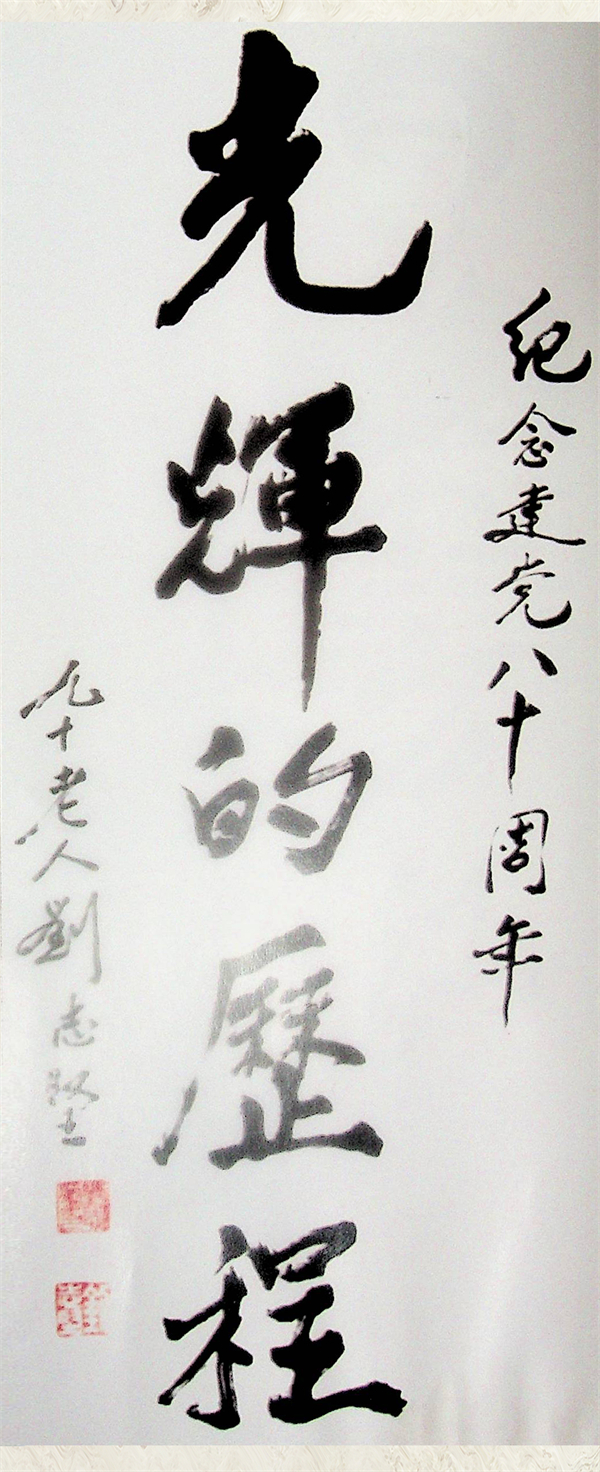 纪念建党八十周年
光輝的歷程
九十老人劉志堅